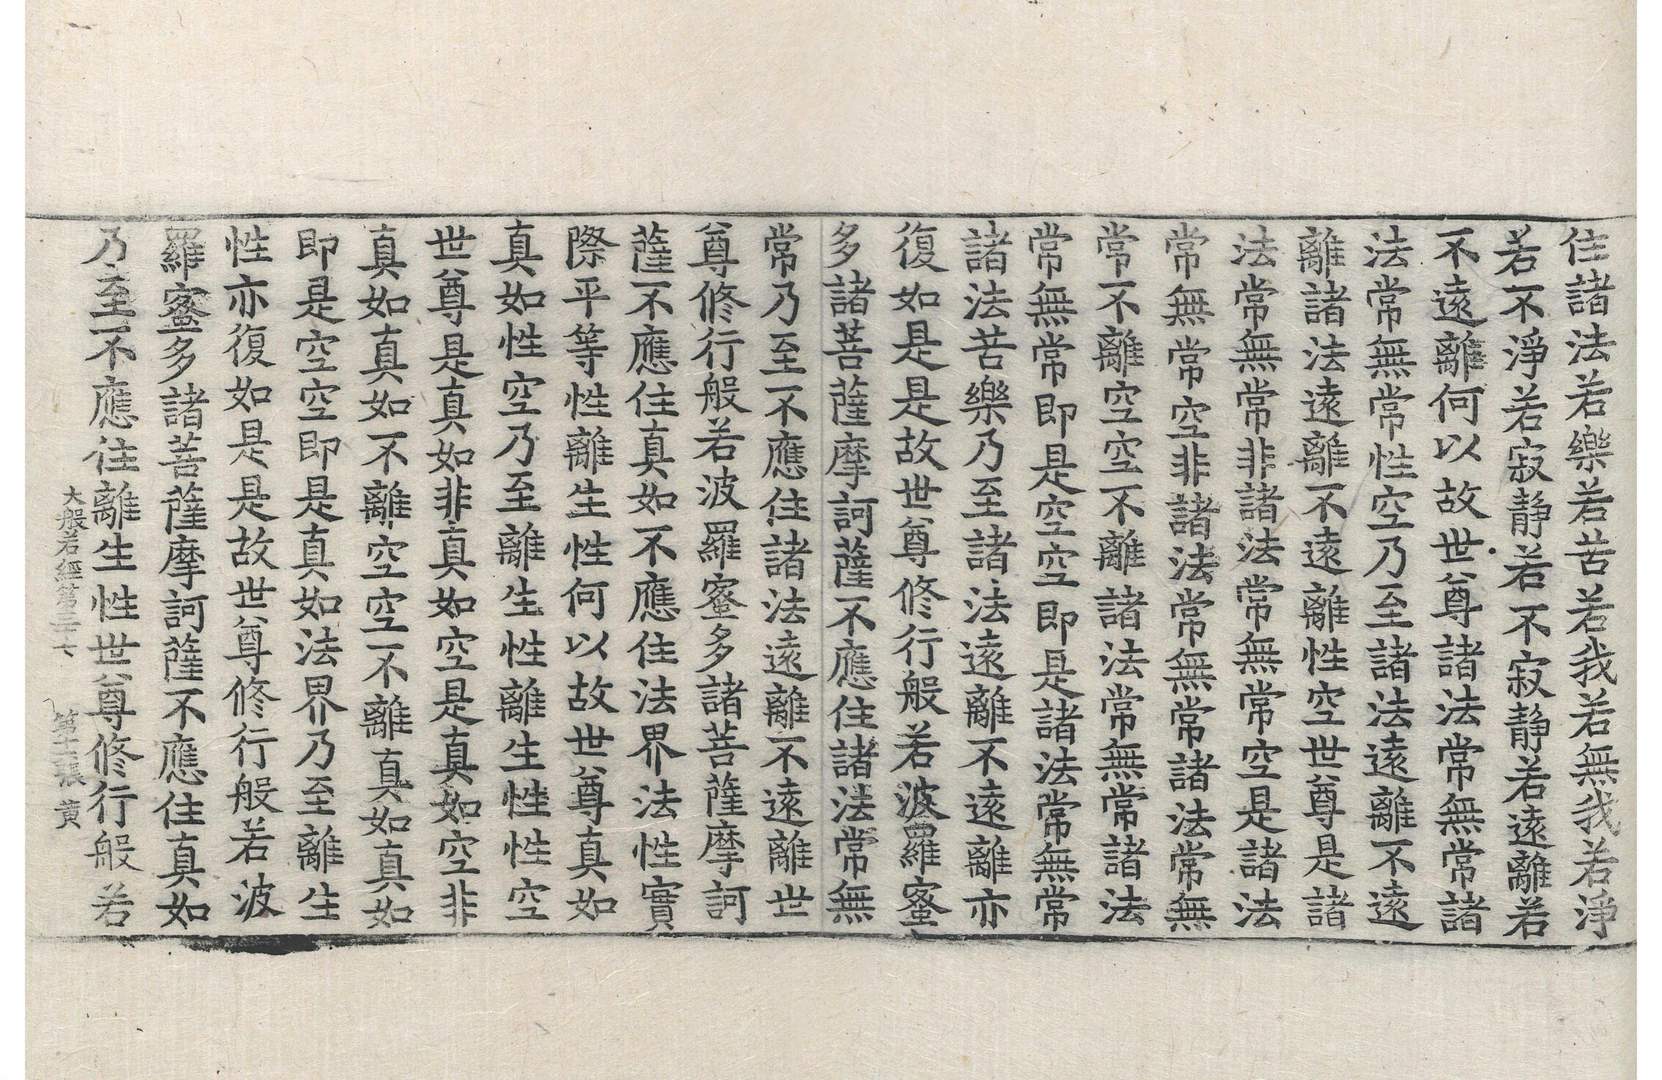 住諸法若樂若苦若我若無我若淨
若不淨若寂静若不寂静若遠離若
不遠離何以故世尊諸法常無常諸
法常無常性空乃至諸法遠離不遠
離諸法遠離不遠離性空世尊是諸
法常無常非諸法常無常空是諸法
常無常空非諸法常無常諸法常無
常不離空空不離諸法常無常諸法
常無常即是空空即是諸法常無常
諸法苦樂乃至諸法遠離不遠離亦
復如是是故世尊修行般若波羅蜜
多諸菩薩摩訶薩不應住諸法常無
常乃至不應住諸法遠離不遠離世
尊修行般若波羅蜜多諸菩薩摩訶
薩不應住真如不應住法界法性實
際平等性離生性何以故世尊真如
真如性空乃至離生性離生性性空
世尊是真如非真如空是真如空非
真如真如不離空空不離真如真如
即是空空即是真如法界乃至離生
性亦復如是是故世尊修行般若波
羅蜜多諸菩薩摩訶薩不應住真如
乃至不應住離生性世尊修行般若
大般若經第三十七 第十二張 黃